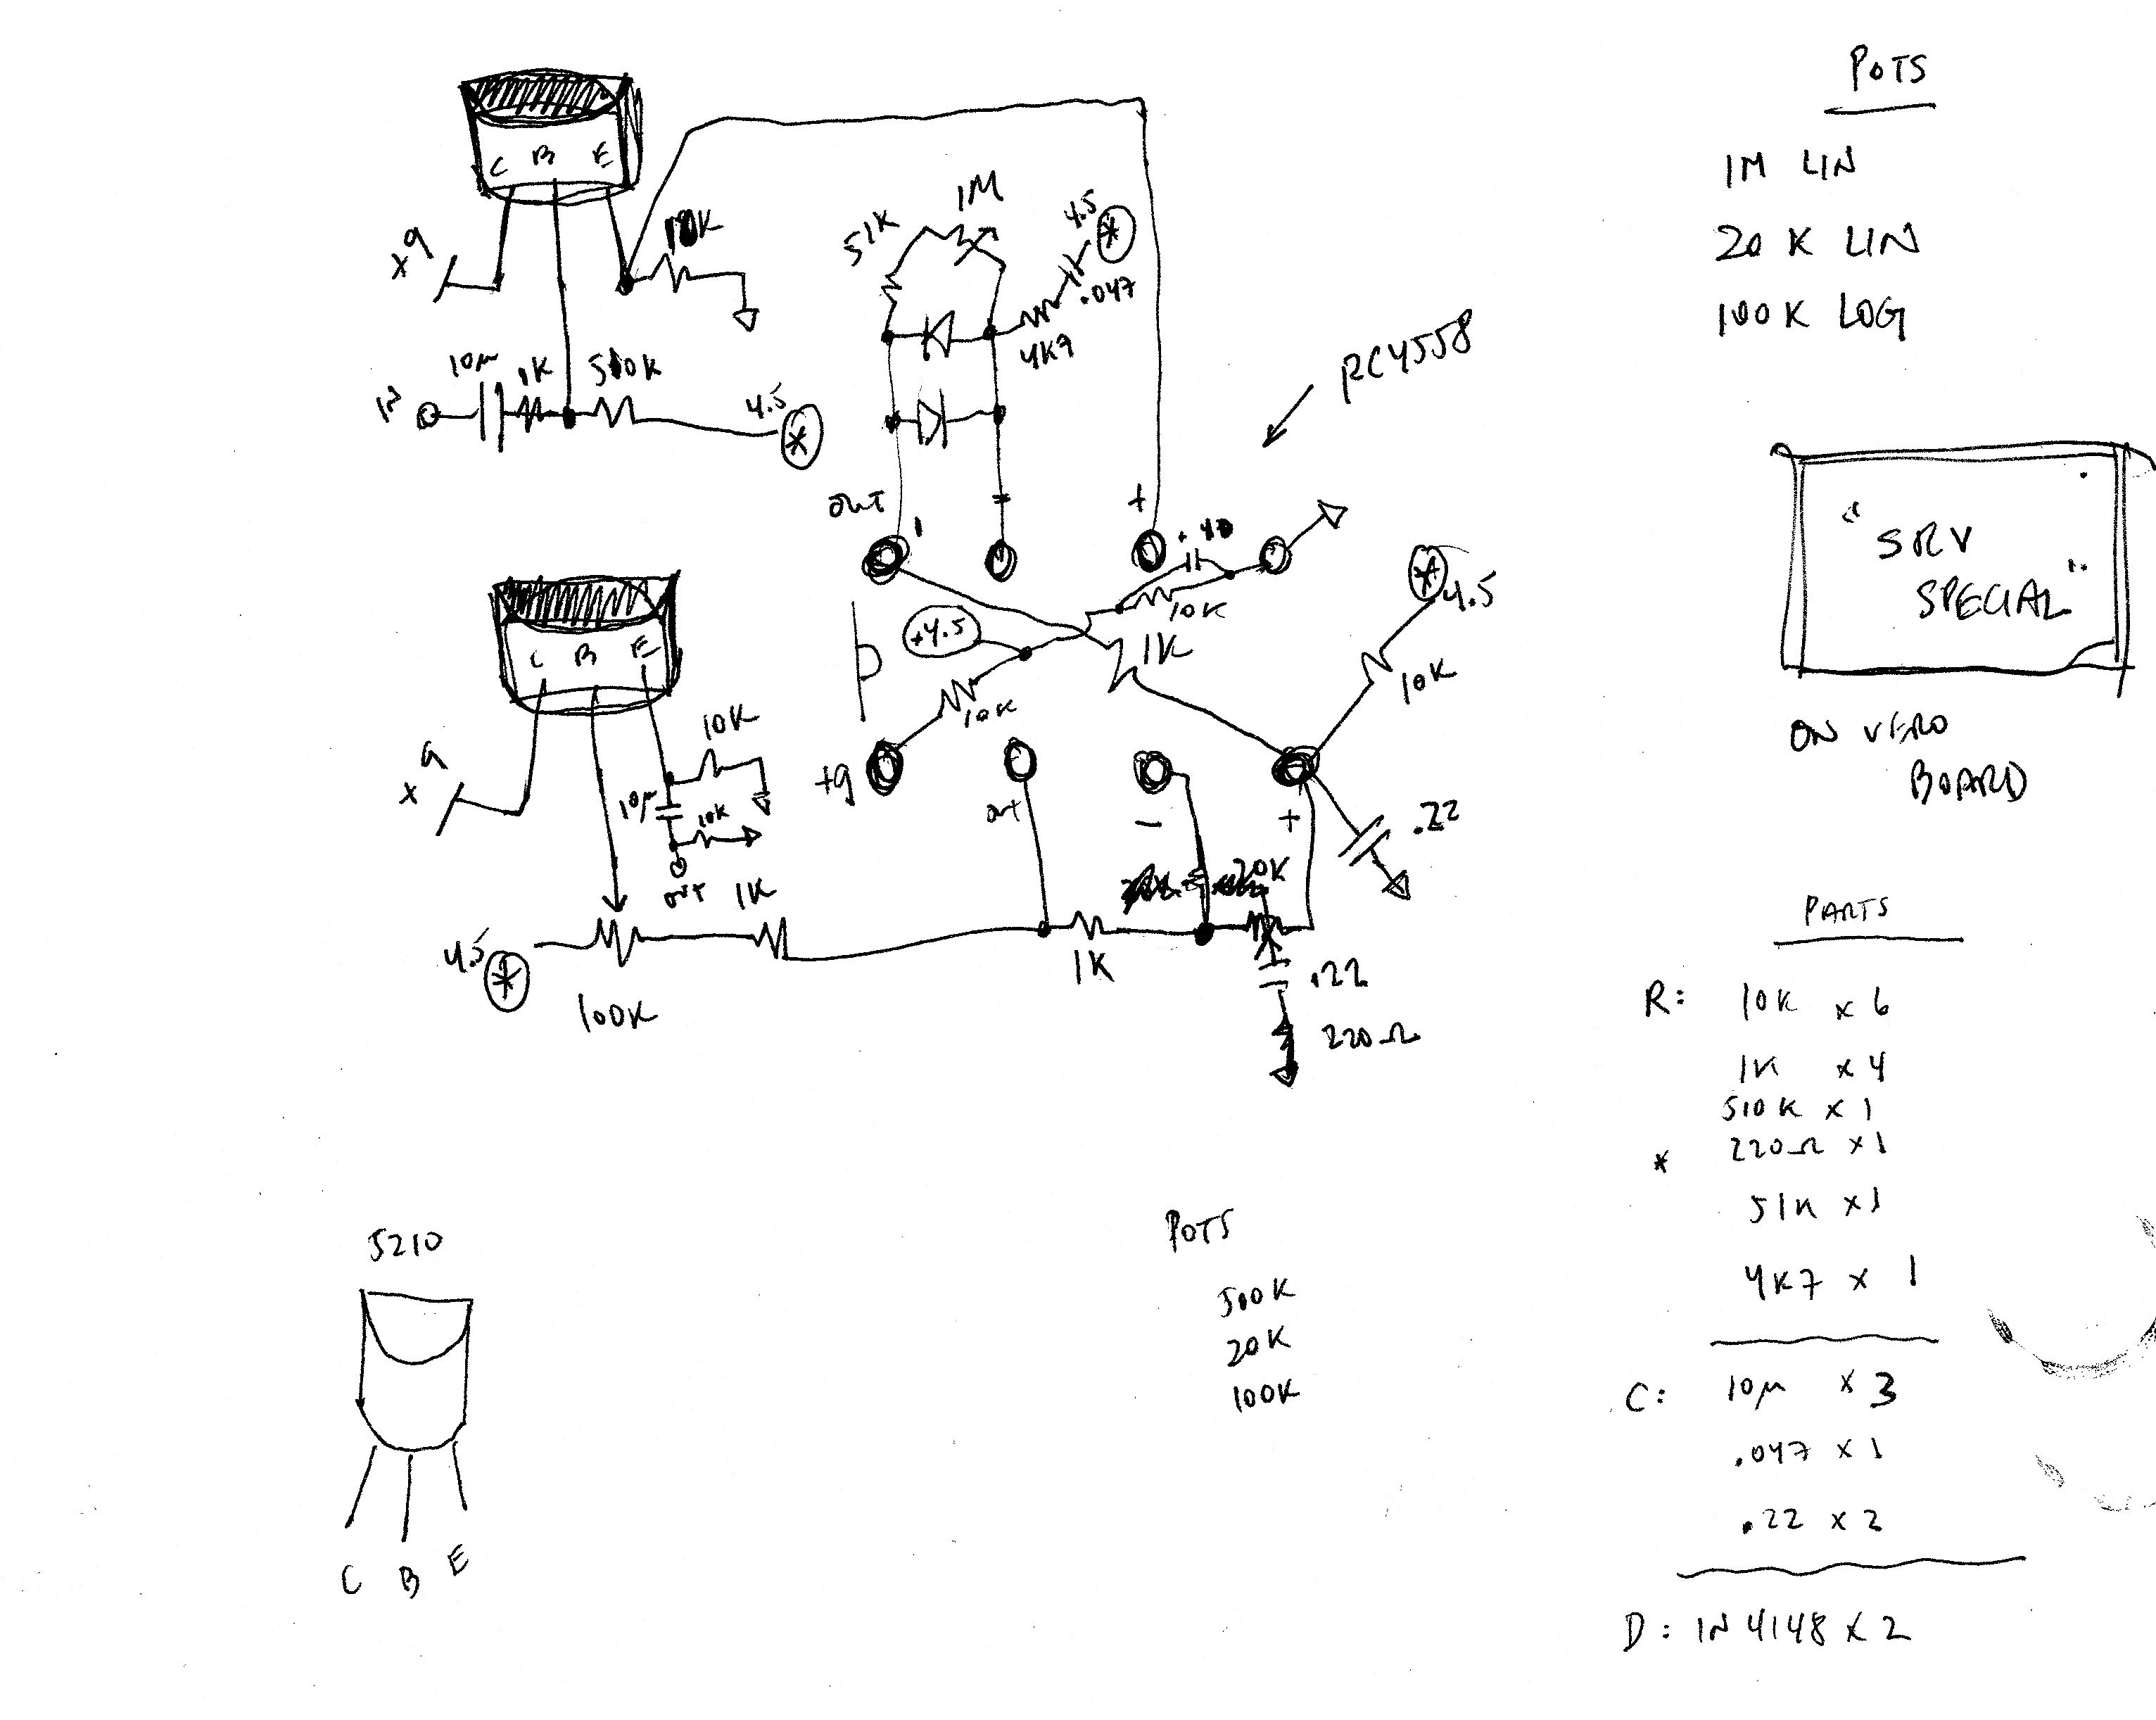 C B E
10K
+9
10µ 1K 510K
IN
4.5
*
51K
1M
4.5
*
.047
4K7
RC4558
OUT
1
-
+
10K
+4.5
1K
10K
+9
OUT
-
+
*
4.5
10K
.22
C B E
+9
10K
10µ
10K
OUT
1K
4.5
*
100K
1K
20K
.22
220Ω
5210
C B E
POTS
500K
20K
100K
POTS
1M LIN
20K LIN
100K LOG
"SRV
SPECIAL"
ON VERO
BOARD
PARTS
R: 10K x 6
1K x 4
510K x 1
* 220Ω x 1
51K x 1
4K7 x 1
C: 10µ x 3
.047 x 1
.22 x 2
D: 1N4148 x 2